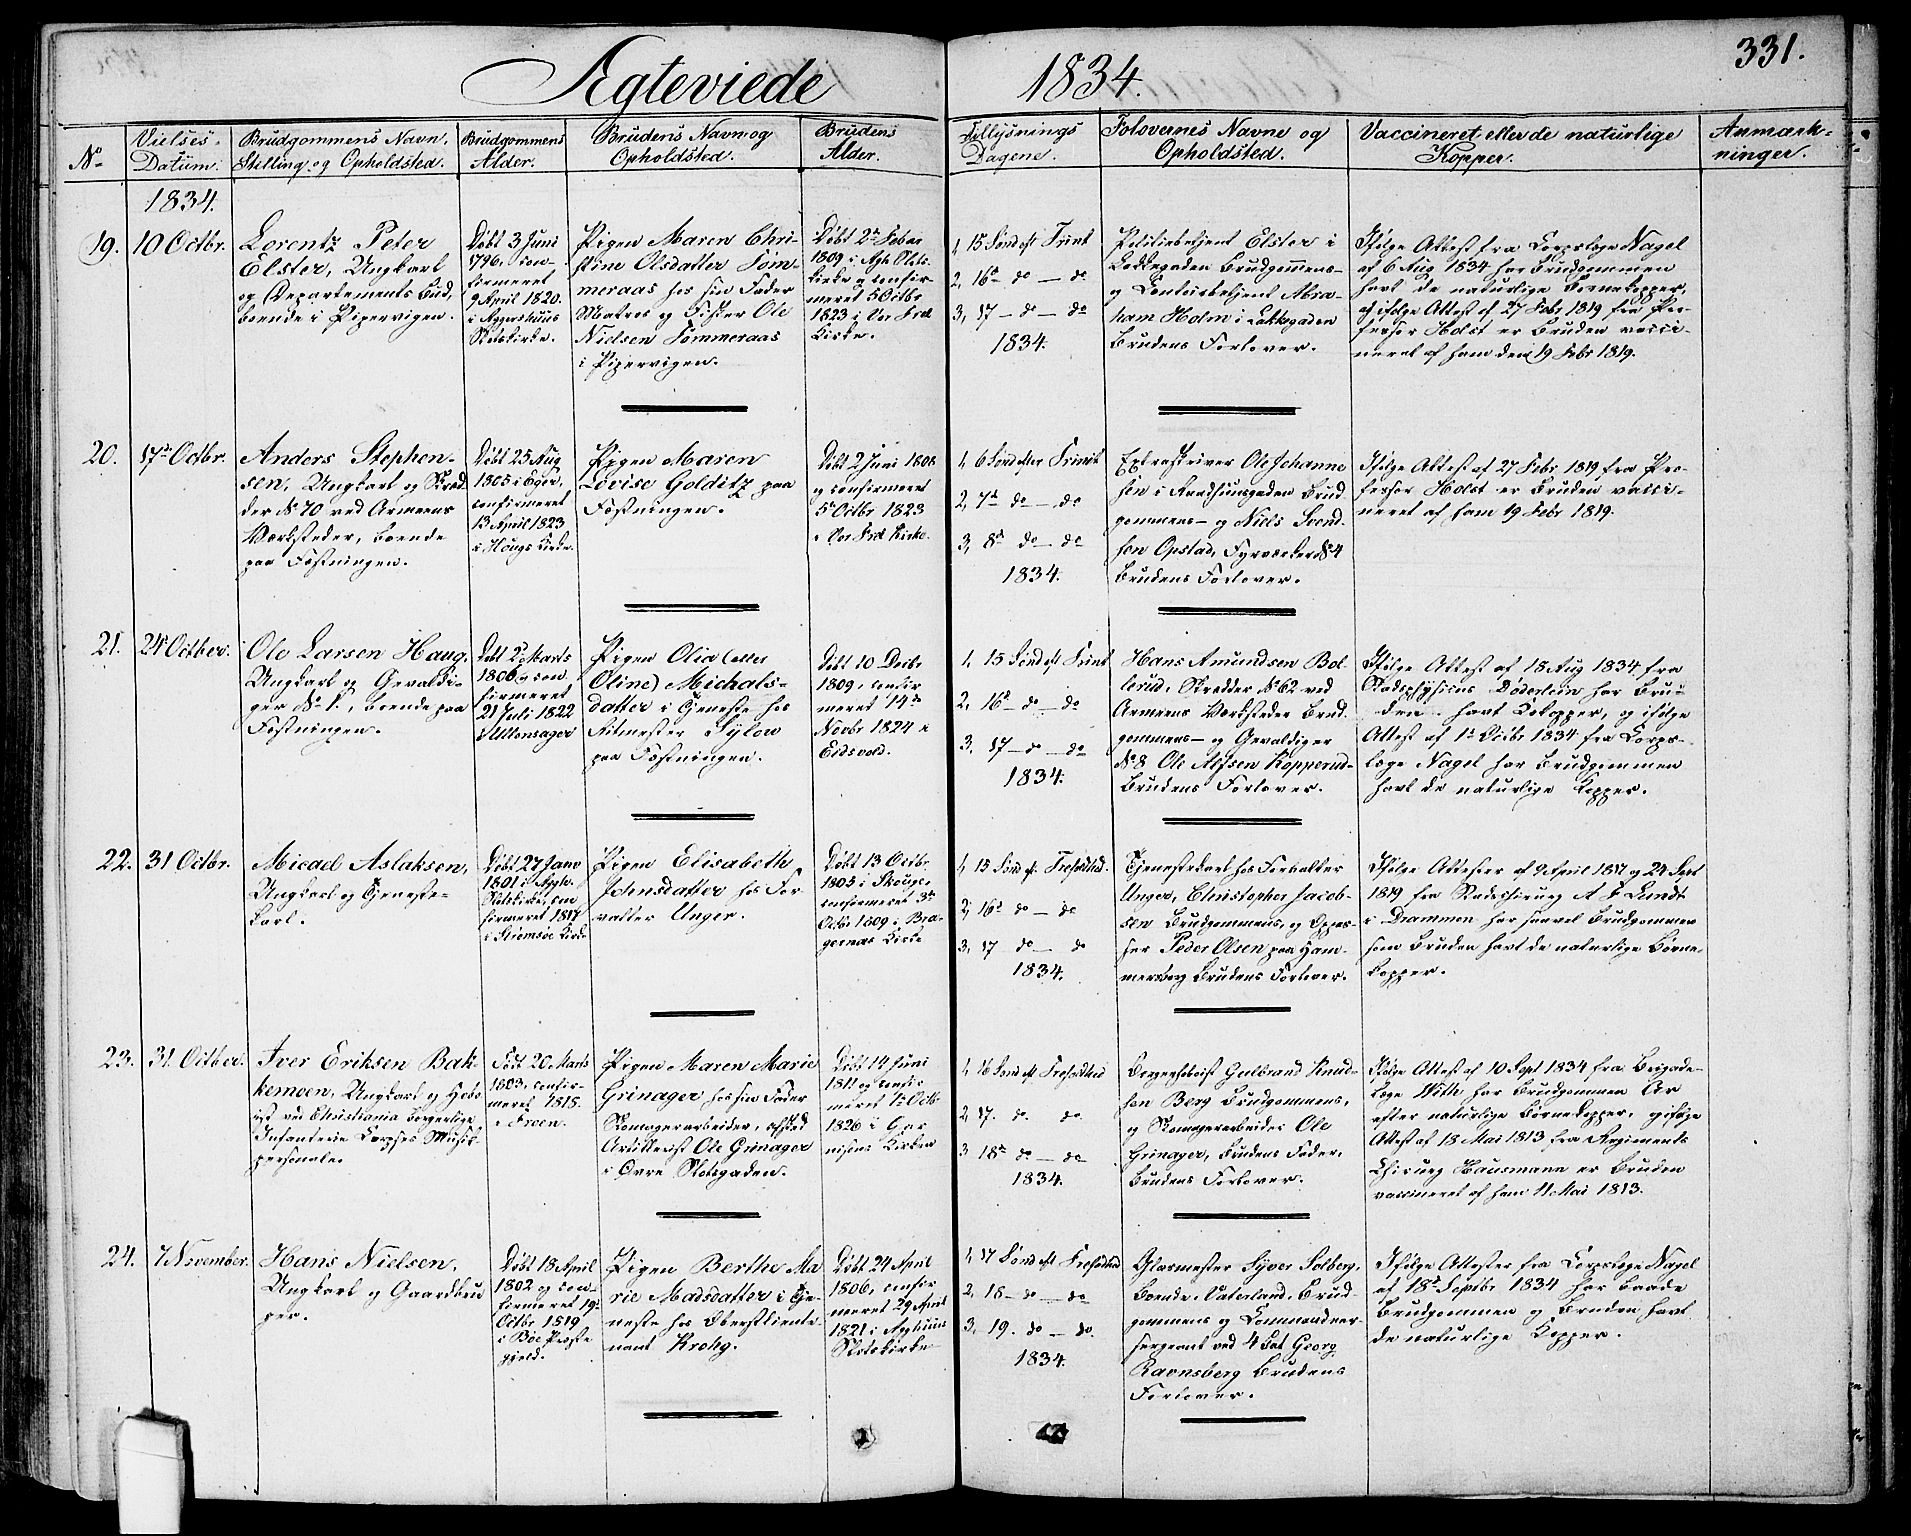 Ægteviede 1834. 331.
No
Vielses-
Datum.
Brudgommens Navn,
Stilling og Opholdsted.
Brudgommens
Alder.
Brudens Navn og
Opholdsted.
Brudens
Alder.
Tillysnings
Dagene.
Folovernes Navne og
Opholdsted.
Vaccineret eller de naturlige
Kopper.
Anmærk-
ninger.
1834.
19.
10 Octbr.
Lorentz Peter
Elster, Ungkarl
og Departements Bud,
boende i Pipervigen.
Døbt 3 Juni
1796, con-
firmeret
9 April 1820.
i Aggershuus
Slotskirke.
Pigen Maren Chri-
stine Olsdatter Tøm-
meraas hos sin Fader
Matros og Fisker Ole
Nielsen Tømmeraas
i Pipervigen.
Døbt 2 Febr
1809 i Agh Slots
kirke og confir-
meret 5 Octbr
1823 i Vor Frels
Kirke.
1, 15 Sønd eft Trinit
2, 16d do — do
3, 17 — do — do
1834.
Politiebetjent Elster i
Lakkegaden Brudgommens-
og Contoirbetjent Abra-
ham Holm i Lakkegaden
Brudens Forlover.
Ifølge Attest fra Corpslæge Nagel
af 6 Aug 1834 har Brudgommen
havt de naturlige Børnekopper,
og ifølge Attest af 27 Febr 1819 fra Pro-
fessor Holst er Bruden vacci-
neret af ham den 19 Febr 1819.
20.
17d Octbr.
Anders Stephen-
sen, Ungkarl og Skræd
der No 70 ved Armeens
Værksteder, boende
paa Fæstningen.
Døbt 25 Aug
1805 i Eger,
confirmeret
13 April 1823
i Hougs Kirke.
Pigen Maren
Lovise Golditz paa
Fæstningen.
Døbt 2 Juni 1808
og confirmeret
5 Octbr 1823
i Vor Frels Kirke.
1, 6 Sønd efter Trinit
2, 7d do — do
3, 8d do — do
1834.
Extraskriver Ole Johanne
sen i Raadhuusgaden Brud
gommens- og Niels Svend-
sen Opstad, Fyrværker No 4
Brudens Forlover.
Ifølge Attest af 27 Febr 1819 fra Pro-
fessor Holst er Bruden vacci-
neret af ham 19 Febr 1819.
21.
24 October.
Ole Larsen Haug,
Ungkarl og Gevaldi-
ger No 1, boende paa
Fæstningen.
Døbt 2 Marts
1806 og con
firmeret
21 Juli 1822
i Ullensager
Pigen Olia (eller
Oline) Michals-
datter i Tjeneste hos
Ritmester Sylow
paa Fæstningen.
Døbt 10 Decbr
1809, confir
meret 14de
Novbr 1824 i
Eidsvold.
1, 15 Sønd eft Trinit
2, 16d — do — do
3, 17 — do — do
1834.
Hans Amundsen Bol-
lerud, Skrædder No 62 ved
Armeens Værksteder Brud
gommens- og Gevaldiger
No 8 Ole Alfsen Kopperud-
Brudens Forlover.
Ifølge Attest af 18 Aug 1834 fra
Stadsphysicus Døderlein har Bru-
den havt Kokopper, og ifølge
Attest af 1 Octbr 1834 fra Corps-
læge Nagel har Brudgommen
havt de naturlige Kopper.
22.
31 Octbr.
Micael Aslaksen,
Ungkarl og Tjeneste-
karl.
Døbt 27 Janv
1801 i Aggh.
Slotskirke, con
firmeret 1817
i Strømsøe Kirke
Pigen Elisabeth
Johnsdatter hos For
valter Unger.
Døbt 13 Octbr
1805 i Skouge,
confirmeret 3de
Octbr 1809 i Bra-
gernæs Kirke
1, 15 Sønd eft. Trefoldhed.
2, 16d do — do
3, 17 do — do
1834.
Tjenestekarl hos Forvalter
Unger, Christopher Jacob-
sen Brudgommens, og Oppas-
ser Peder Olsen paa Ham-
mersborg Brudens Forlover.
Ifølge Attester af 9 April 1817 og 24 Sept
1819 fra Stadschirurg A F Lundt
i Drammen har saavel Brudgommen
som Bruden havt de naturlige Børne-
kopper.
23.
31. October.
Iver Eriksen Bak-
kemoen, Ungkarl og Hobo
ist ved Christiania borgerlige
Infanterie Corpses Musik
personale.
Født 20 Marts
1803, confir-
meret 1818.
i Froen.
Pigen Maren Marie
Grinager hos sin Fader
Skomagerarbeider, afsked
Artillerist Ole Grinager
i Øvre Slotsgaden.
Døbt 14 Juni
1811 og confir
meret 1 Octb
1826 i Gar
nisons Kirken
1, 16 Sønd eft Trefoldhed
2, 17. do. do.
3 18d do — do
1834.
Gulbrand Knud-
sen Berg Brudgommens,
og Skomagerarbeider Ole
Grinager, Brudens Fader,
Brudens Forlover.
Ifølge Attest af 10 Sept 1834 fra Brigade-
læge With har Brudgommen Ar
efter naturlige Børnekopper, og ifølge
Attest af 18 Mai 1813 fra Regiments
Chirurg Hausmann er Bruden
vaccineret af ham 11 Mai 1813.
24.
7 November.
Hans Nielsen,
Ungkarl og Gaardbru
ger.
Døbt 18 April
1802 og con-
firmeret 19
Octbr 1819
i Bøe Præste
gjeld.
Pigen Berthe Ma
rie Madsdatter i Tje-
neste hos Oberstlieute-
nant Krohg.
Døbt 24 April
1806, confir
meret 29 April
1821 i Agghuus
Slotskirke
1, 17 Sønd eft Trefoldhed
2, 18 — do — do
3, 19. do — do.
1834.
Glasmester Syver Solberg,
boende i Vaterland, Brud
gommens og Commandeer
sergeant ved 4 Bat Georg
Ravnsberg Brudens
Forlover.
Ifølge Attester fra Corpslæge Nagel
af 18d Septbr 1834 har baade
Brudgommen og Bruden havt
de naturlige Kopper.